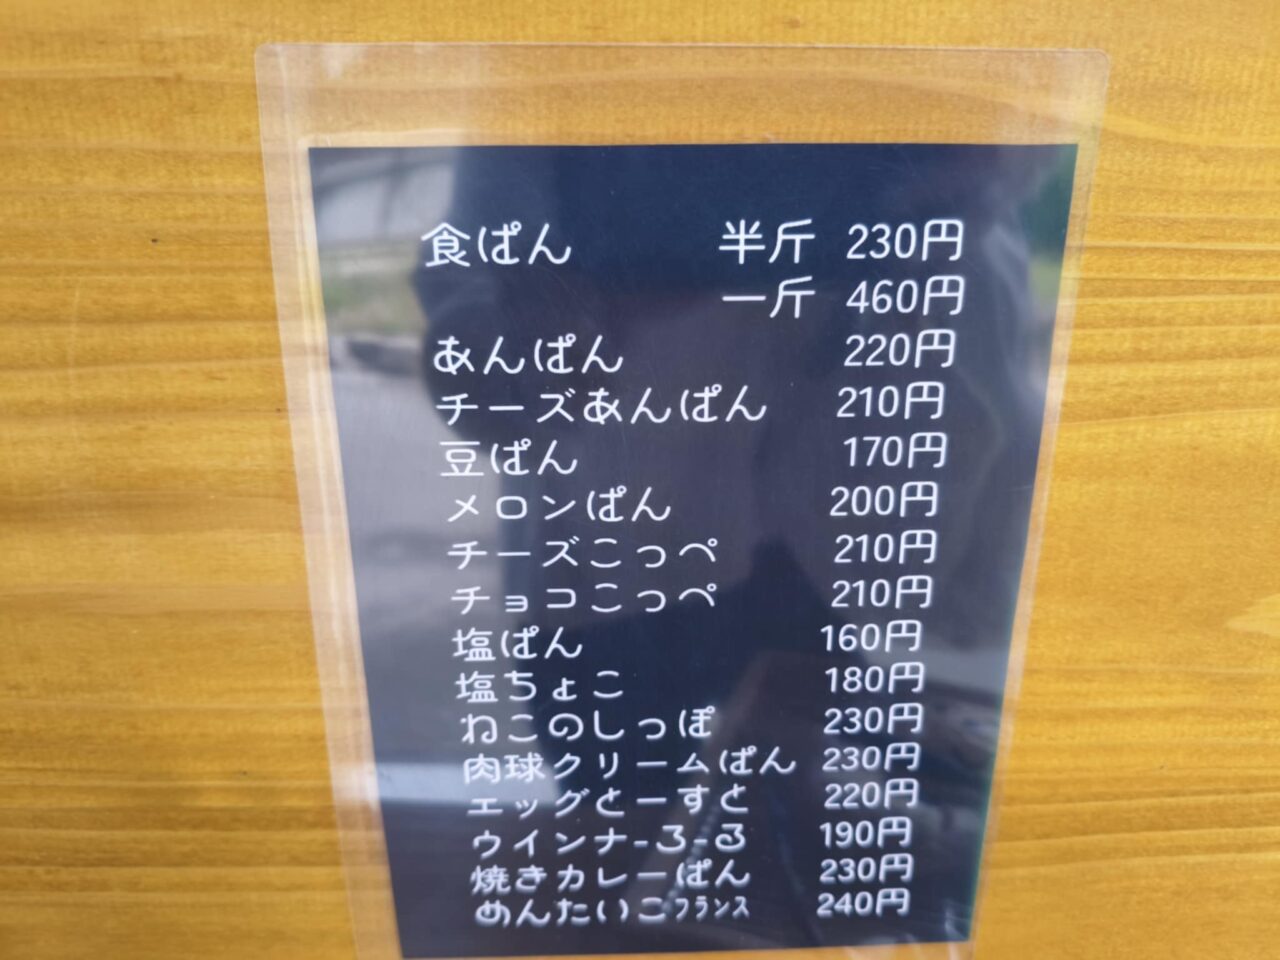 食ぱん 半斤 230円
一斤 460円
あんぱん 220円
チーズあんぱん 210円
豆ぱん 170円
メロンぱん 200円
チーズこっぺ 210円
チョココっぺ 210円
塩ぱん 160円
塩ちょこ 180円
ねこのしっぽ 230円
肉球クリームぱん 230円
エッグとーすと 220円
ウインナ-ろ-る 190円
焼きカレーぱん 230円
めんたいこフランス 240円